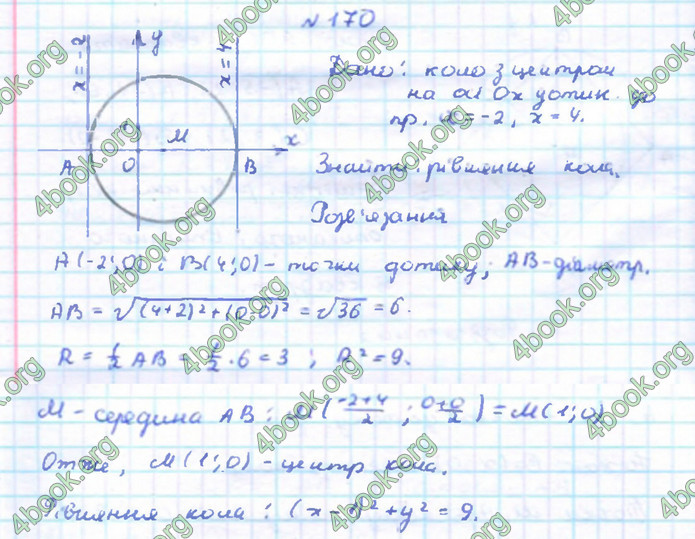 № 170
y
x = -2
x = 4
Дано: коло з центром
на осі Ox дотик. до
пр. x = -2, x = 4.
A O M B x
Знайти: рівняння кола.
Розв'язання
A(-2; 0) і B(4; 0) - точки дотику; AB - діаметр.
AB = √((4+2)² + (0-0)²) = √36 = 6.
R = 1/2 AB = 1/2 · 6 = 3; R² = 9.
M - середина AB: M((-2+4)/2; (0+0)/2) = M(1; 0)
Отже, M(1; 0) - центр кола.
Рівняння кола: (x - 1)² + y² = 9.
4book.org